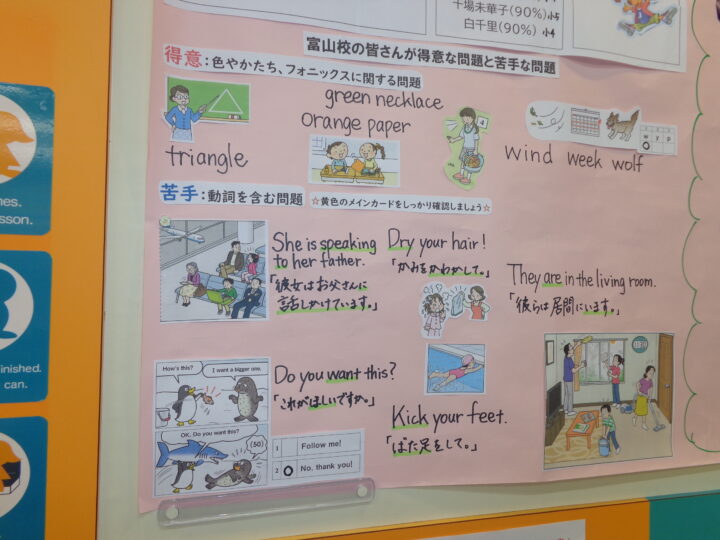 千場未華子(90%)小5
白千里(90%) 小4
富山校の皆さんが得意な問題と苦手な問題
得意:色やかたち、フォニックスに関する問題
green necklace
orange paper
triangle
4
w y p
wind week wolf
苦手:動詞を含む問題
☆黄色のメインカードをしっかり確認しましょう☆
She is speaking
to her father.
「彼女はお父さんに
話しかけています。」
Dry your hair!
「かみをかわかして。」
They are in the living room.
「彼らは居間にいます。」
How's this?
I want a bigger one.
OK. Do you want this?
(50)
1 Follow me!
2 No, thank you!
Do you want this?
「これがほしいですか。」
Kick your feet.
「ばた足をして。」
nes.
sson.
inished.
can.